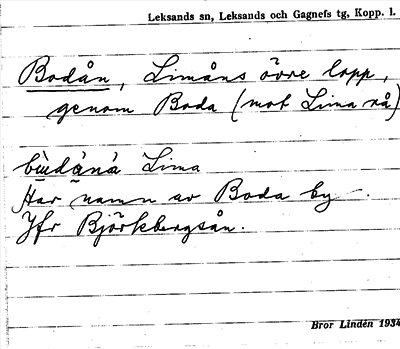 Leksands sn, Leksands och Gagnefs tg, Kopp. l.
Bodån, Limåns övre lopp,
genom Boda (mot Lima rå)
Lima
Har namn av Boda by.
Jfr Björkbergsån.
Bror Lindén 1934